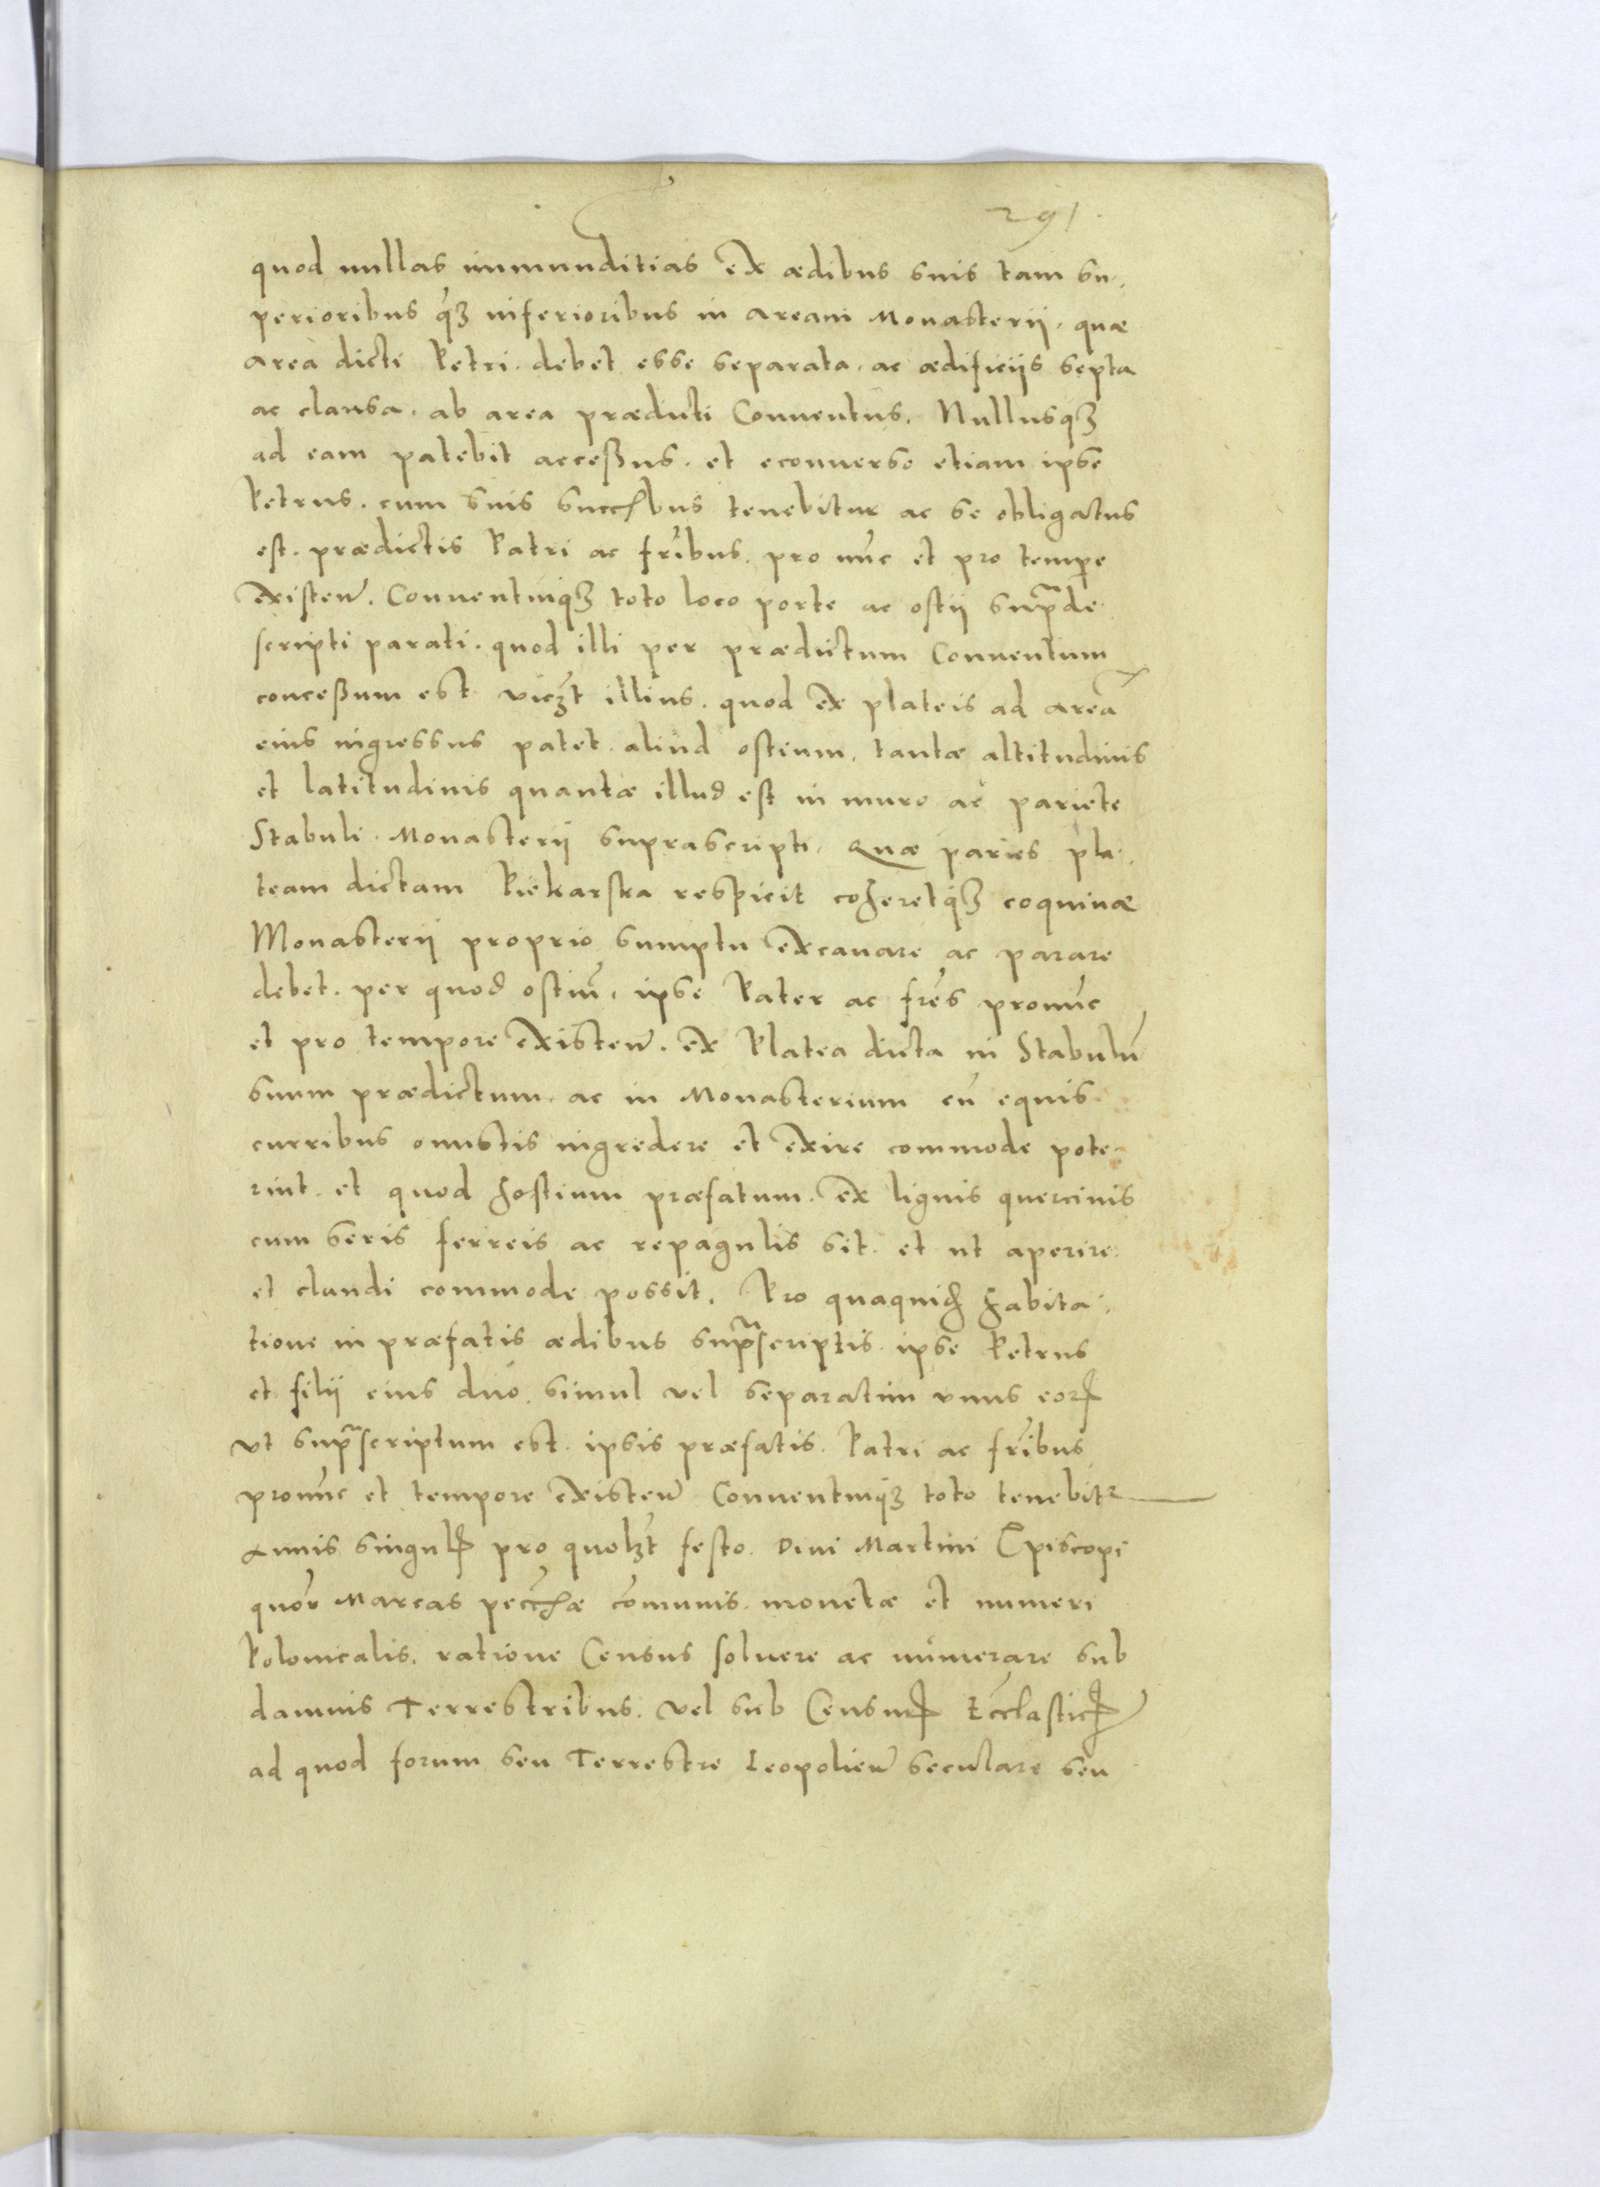 291
quod nullas immunditias ex ædibus suis tam su-
perioribus q̃ȝ inferioribus in aream Monasterii, quæ
area dicti Petri debet esse separata, ac ædificiis septa
ac clausa, ab area prædicti Conuentus. Nullusqȝ
ad eam patebit accessus. et econuerso etiam ipse
Petrus, cum suis succ̃bus tenebitur ac se obligatus
est, prædictis Patri ac fr̃ibus, pro nũc et pro tempe
existeñ. Conuentuiqȝ toto loco porte ac ostii supͣde
scripti parati, quod illi per prædictum Conuentum
concessum est viczt illius, quod ex plateis ad areã
eius ingressus patet, aliud ostium, tantæ altitudinis
et latitudinis quantæ illud est in muro ac pariete
Stabuli Monasterii suprascripti, Quæ paries pla-
team dictam Piekarska respicit coheretqȝ coquinæ
Monasterii proprio sumptu excauare ac parare
debet, per quod ostiũ, ipse Pater ac fr̃es pronũc
et pro tempore existeñ, ex Platea dicta in Stabulũ
suum prædictum, ac in Monasterium cũ equis
curribus onustis ingredere et exire commode pote-
rint, et quod hostium præfatum, ex lignis quercinis
cum seris ferreis ac repagulis sit, et ut aperire
et claudi commode possit. Pro quaquid̃ habita-
tione in præfatis ædibus supͣscriptis ipse Petrus
et filii eius duo, simul vel separatim vnus eorꝝ
vt supͣscriptum est, ipsis præfatis, Patri ac fr̃ibus
pronũc et tempore existeñ Conuentuiqȝ toto tenebitr
Annis singulꝭ pro quolȝt festo Diui Martini Episcopi
quor̃ Marcas pecc̃æ com̃unis monetæ et numeri
Polonicalis, ratione Census soluere ac numerare sub
damnis Terrestribus, vel sub Censurꝭ Eccl̃asticꝭ
ad quod forum seu Terrestre Leopolieñ seculare seu